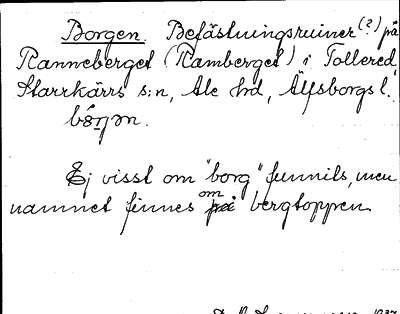 Borgen. Befästningsruiner (?) på
Ranneberget (Ramberget) i Tollered
Starrkärrs s:n, Ale hd, Älfsborgs l.
Ej visst om "borg" funnits, men
namnet finnes om bergtoppen